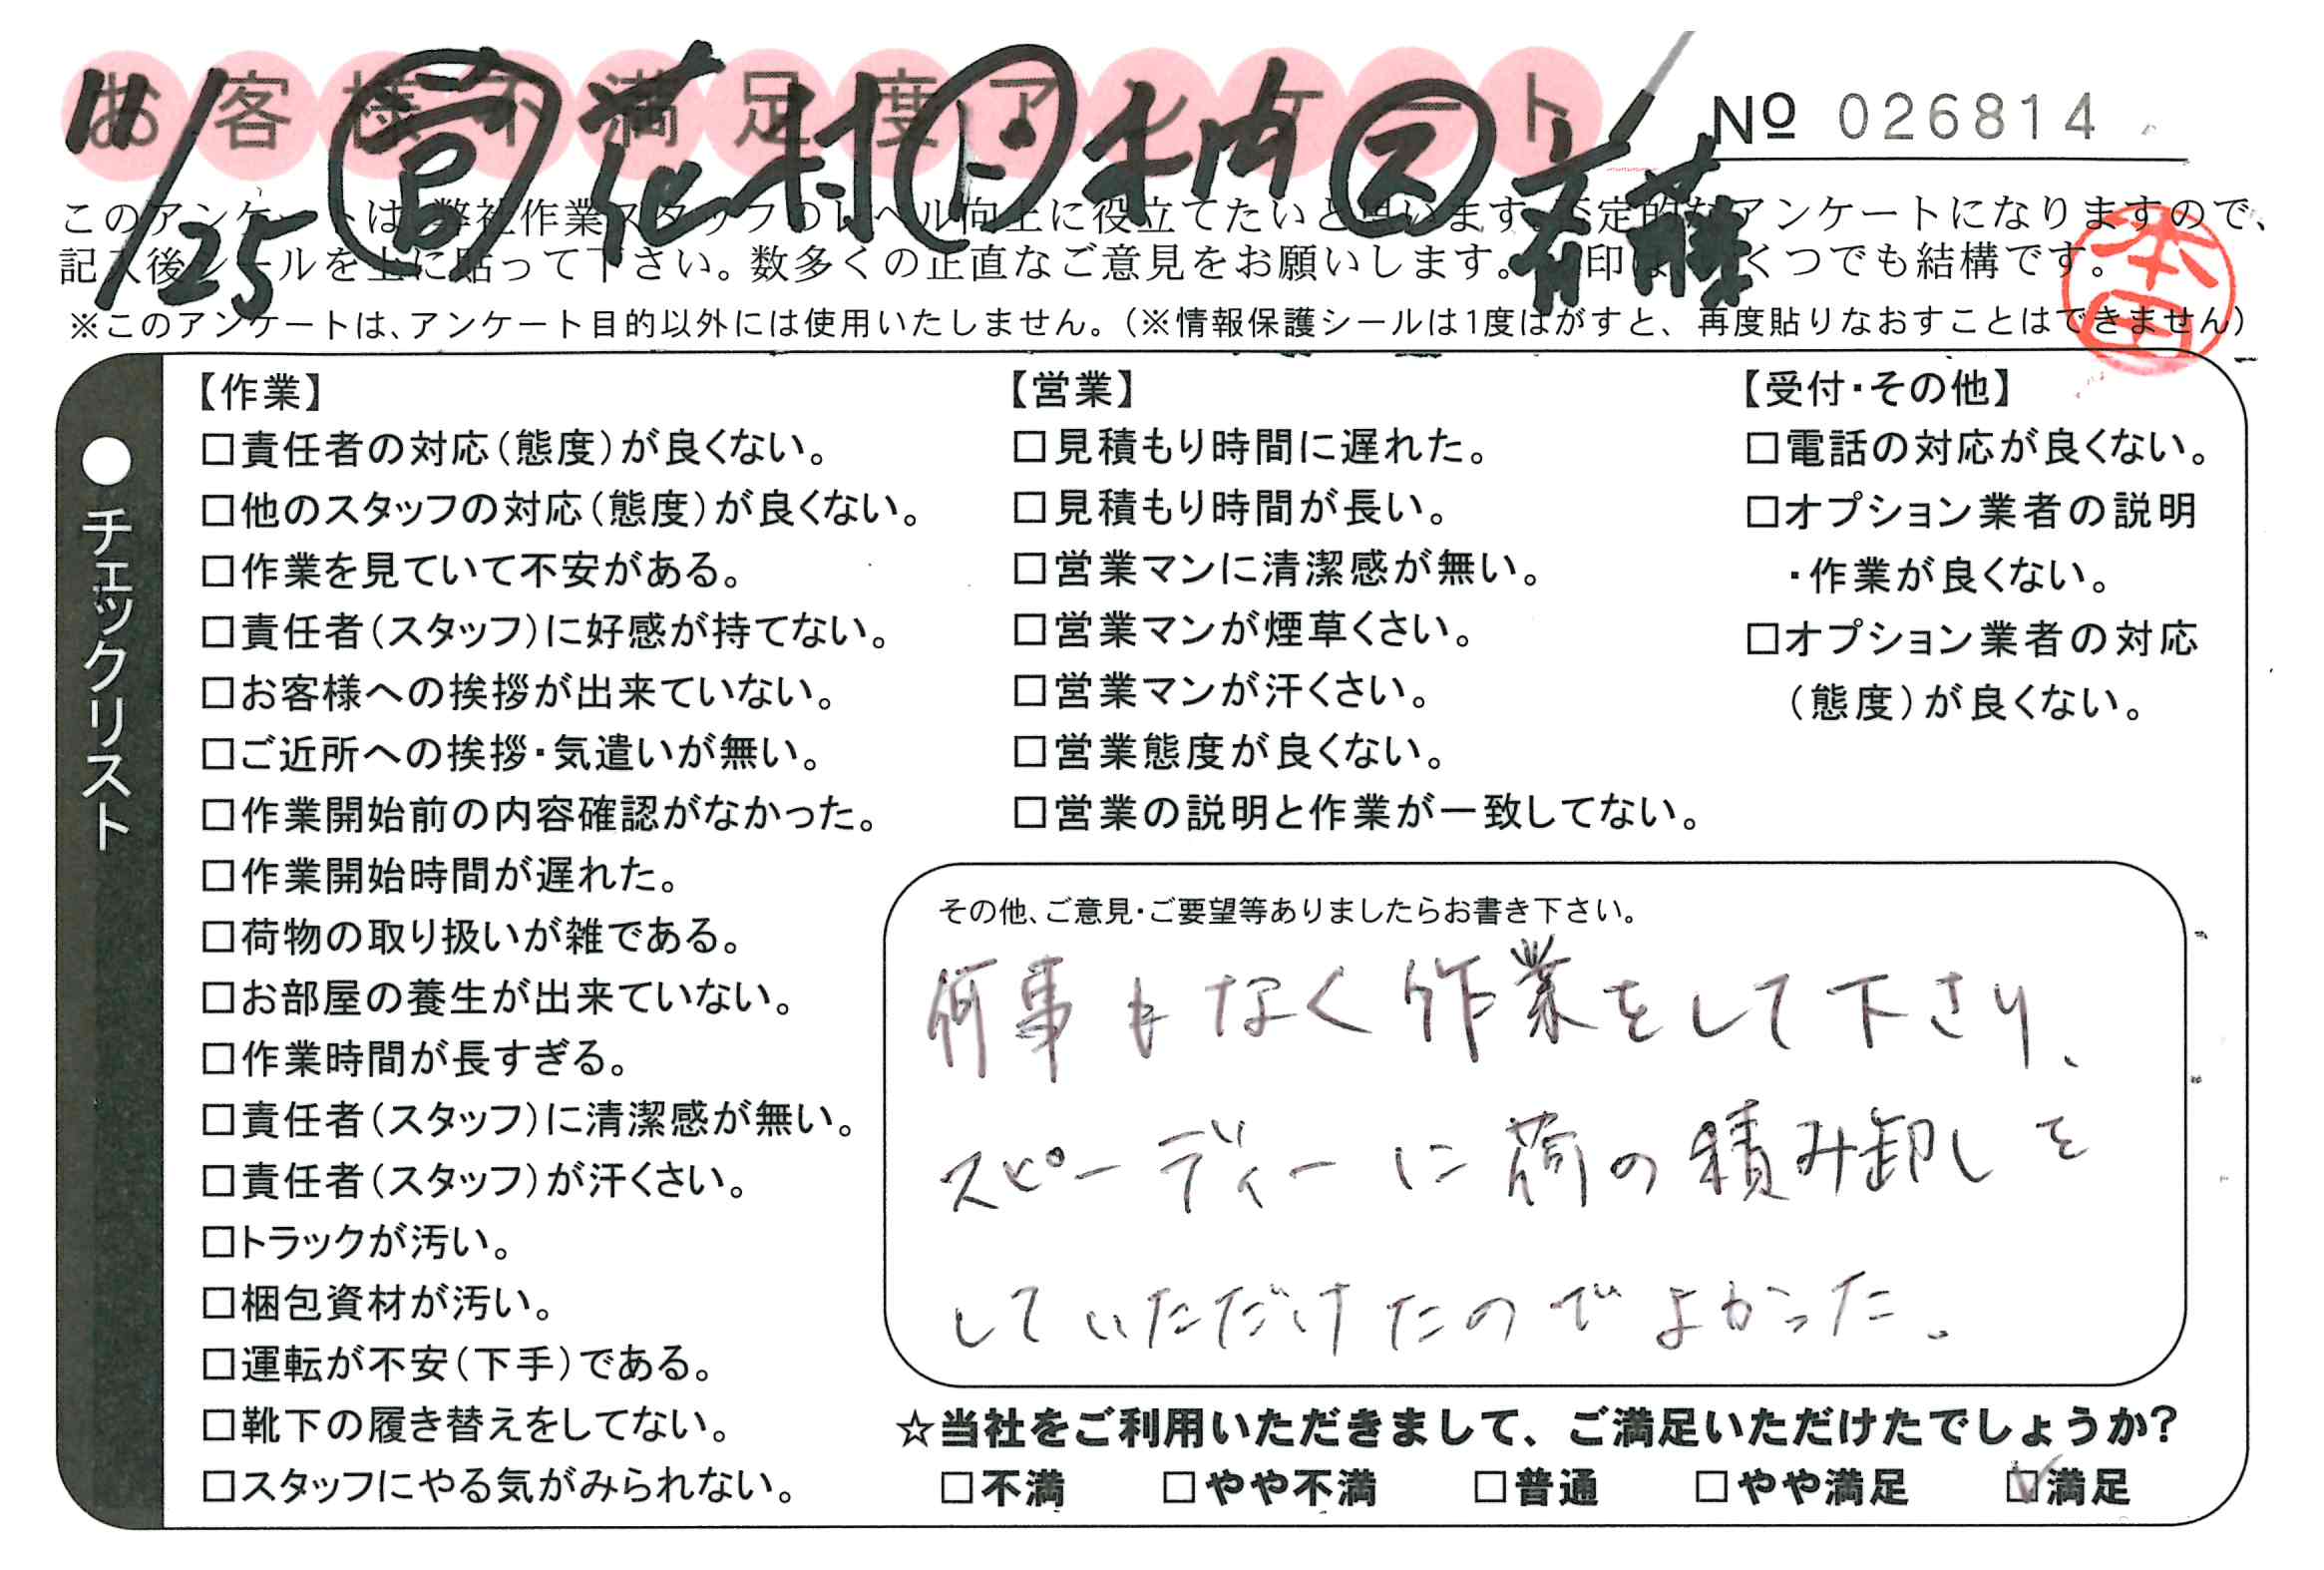 お客様不満足度アンケート
11/25 営 花村 日 木内 ス 斉藤
№ 026814
このアンケートは、弊社作業スタッフのレベル向上に役立てたいと思います。否定的なアンケートになりますので、
記入後シールを上に貼って下さい。数多くの正直なご意見をお願いします。 印は くつでも結構です。
本田
※このアンケートは、アンケート目的以外には使用いたしません。(※情報保護シールは1度はがすと、再度貼りなおすことはできません)
●チェックリスト
【作業】
□責任者の対応(態度)が良くない。
□他のスタッフの対応(態度)が良くない。
□作業を見ていて不安がある。
□責任者(スタッフ)に好感が持てない。
□お客様への挨拶が出来ていない。
□ご近所への挨拶・気遣いが無い。
□作業開始前の内容確認がなかった。
□作業開始時間が遅れた。
□荷物の取り扱いが雑である。
□お部屋の養生が出来ていない。
□作業時間が長すぎる。
□責任者(スタッフ)に清潔感が無い。
□責任者(スタッフ)が汗くさい。
□トラックが汚い。
□梱包資材が汚い。
□運転が不安(下手)である。
□靴下の履き替えをしてない。
□スタッフにやる気がみられない。
【営業】
□見積もり時間に遅れた。
□見積もり時間が長い。
□営業マンに清潔感が無い。
□営業マンが煙草くさい。
□営業マンが汗くさい。
□営業態度が良くない。
□営業の説明と作業が一致してない。
【受付・その他】
□電話の対応が良くない。
□オプション業者の説明
・作業が良くない。
□オプション業者の対応
(態度)が良くない。
その他、ご意見・ご要望等ありましたらお書き下さい。
何事もなく作業をして下さり、
スピーディーに荷の積み卸しを
していただけたのでよかった。
☆当社をご利用いただきまして、ご満足いただけたでしょうか?
□不満 □やや不満 □普通 □やや満足 ☑満足